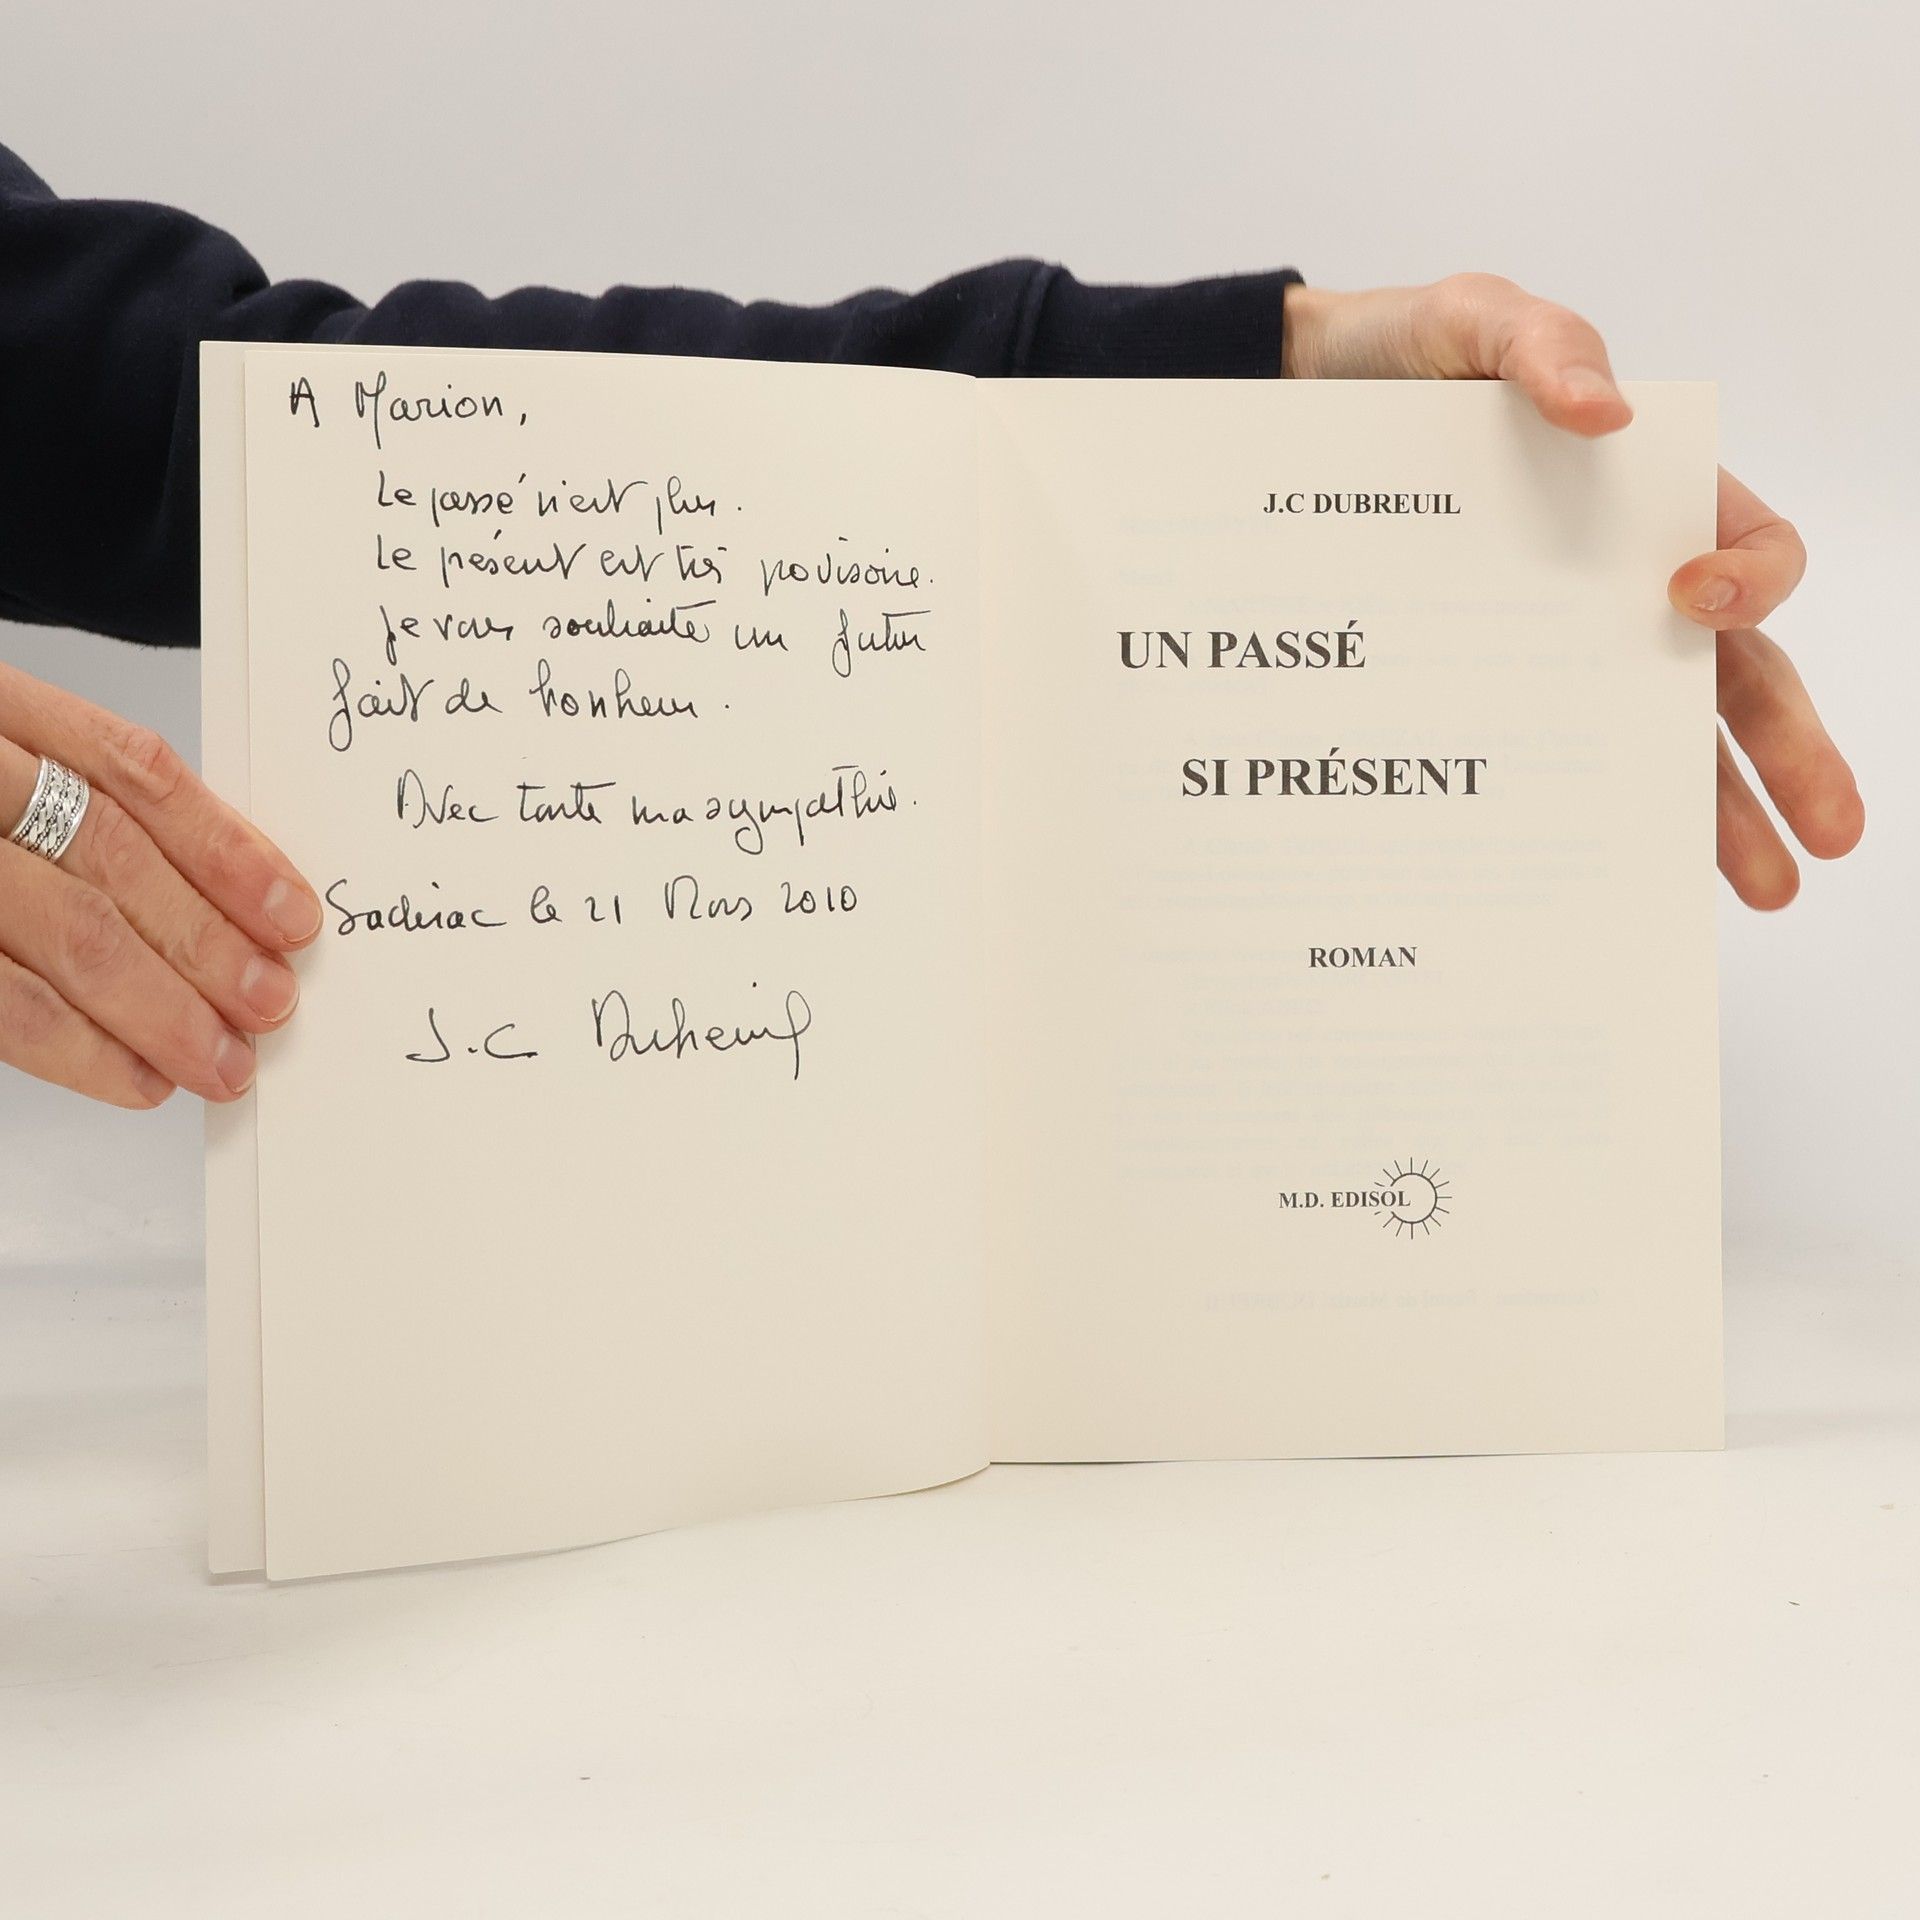 A Marion,
Le passé n'est plus.
Le présent est très provisoire.
Je vous souhaite un futur
fait de bonheur.
Avec toute ma sympathie.
Sadirac le 21 Mars 2010
J.C Dubreuil
J.C DUBREUIL
UN PASSÉ
SI PRÉSENT
ROMAN
M.D. EDISOL